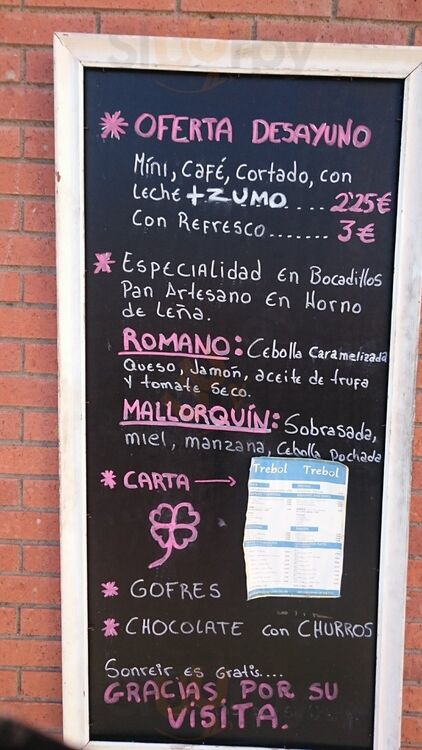 * OFERTA DESAYUNO
Míni, Café, Cortado, con
Leche + ZUMO.... 2'25€
Con Refresco....... 3€
* Especialidad en Bocadillos
Pan Artesano en Horno
de Leña.
ROMANO: Cebolla Caramelizada
Queso, Jamón, aceite de trufa
y tomate seco.
MALLORQUÍN: Sobrasada,
miel, manzana, Cebolla Pochada
* CARTA →
Trebol Trebol
* GOFRES
* CHOCOLATE con CHURROS
Sonreir es Gratis....
GRACIAS POR SU
VISITA.